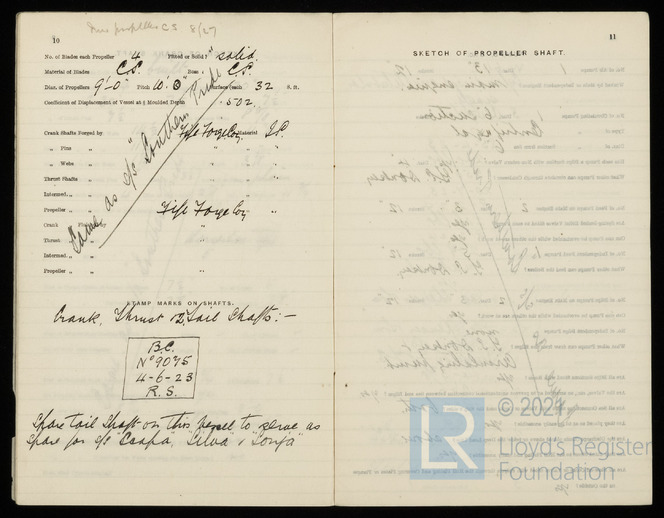 New propeller C.S. 8/27
10
No. of Blades each Propeller 4 Fitted or Solid? solid
Material of Blades C.S. Boss C.S.
Diam. of Propellers 9'-0" Pitch 10'.0" Surface (each 32 S. ft.
Coefficient of Displacement of Vessel at ⅘ Moulded Depth .502.
Crank Shafts Forged by Fife Forge Coy Material I.S.
" Pins " "
" Webs " "
Thrust Shafts " "
Intermed. " "
Propeller " " Fife Forge Coy "
Crank Finished by "
Thrust "
Intermed. " "
Propeller " " "
"Same as s/s "Southern Pride"
STAMP MARKS ON SHAFTS.
Crank, Thrust & 2 Tail Shafts:-
B.C.
No 9075
4-6-23
R.S.
Spare tail shaft on this vessel to serve as
spare for s/s "Silva" &
11
SKETCH OF PROPELLER SHAFT.
© 2021
LR
Lloyd's Register
Foundation